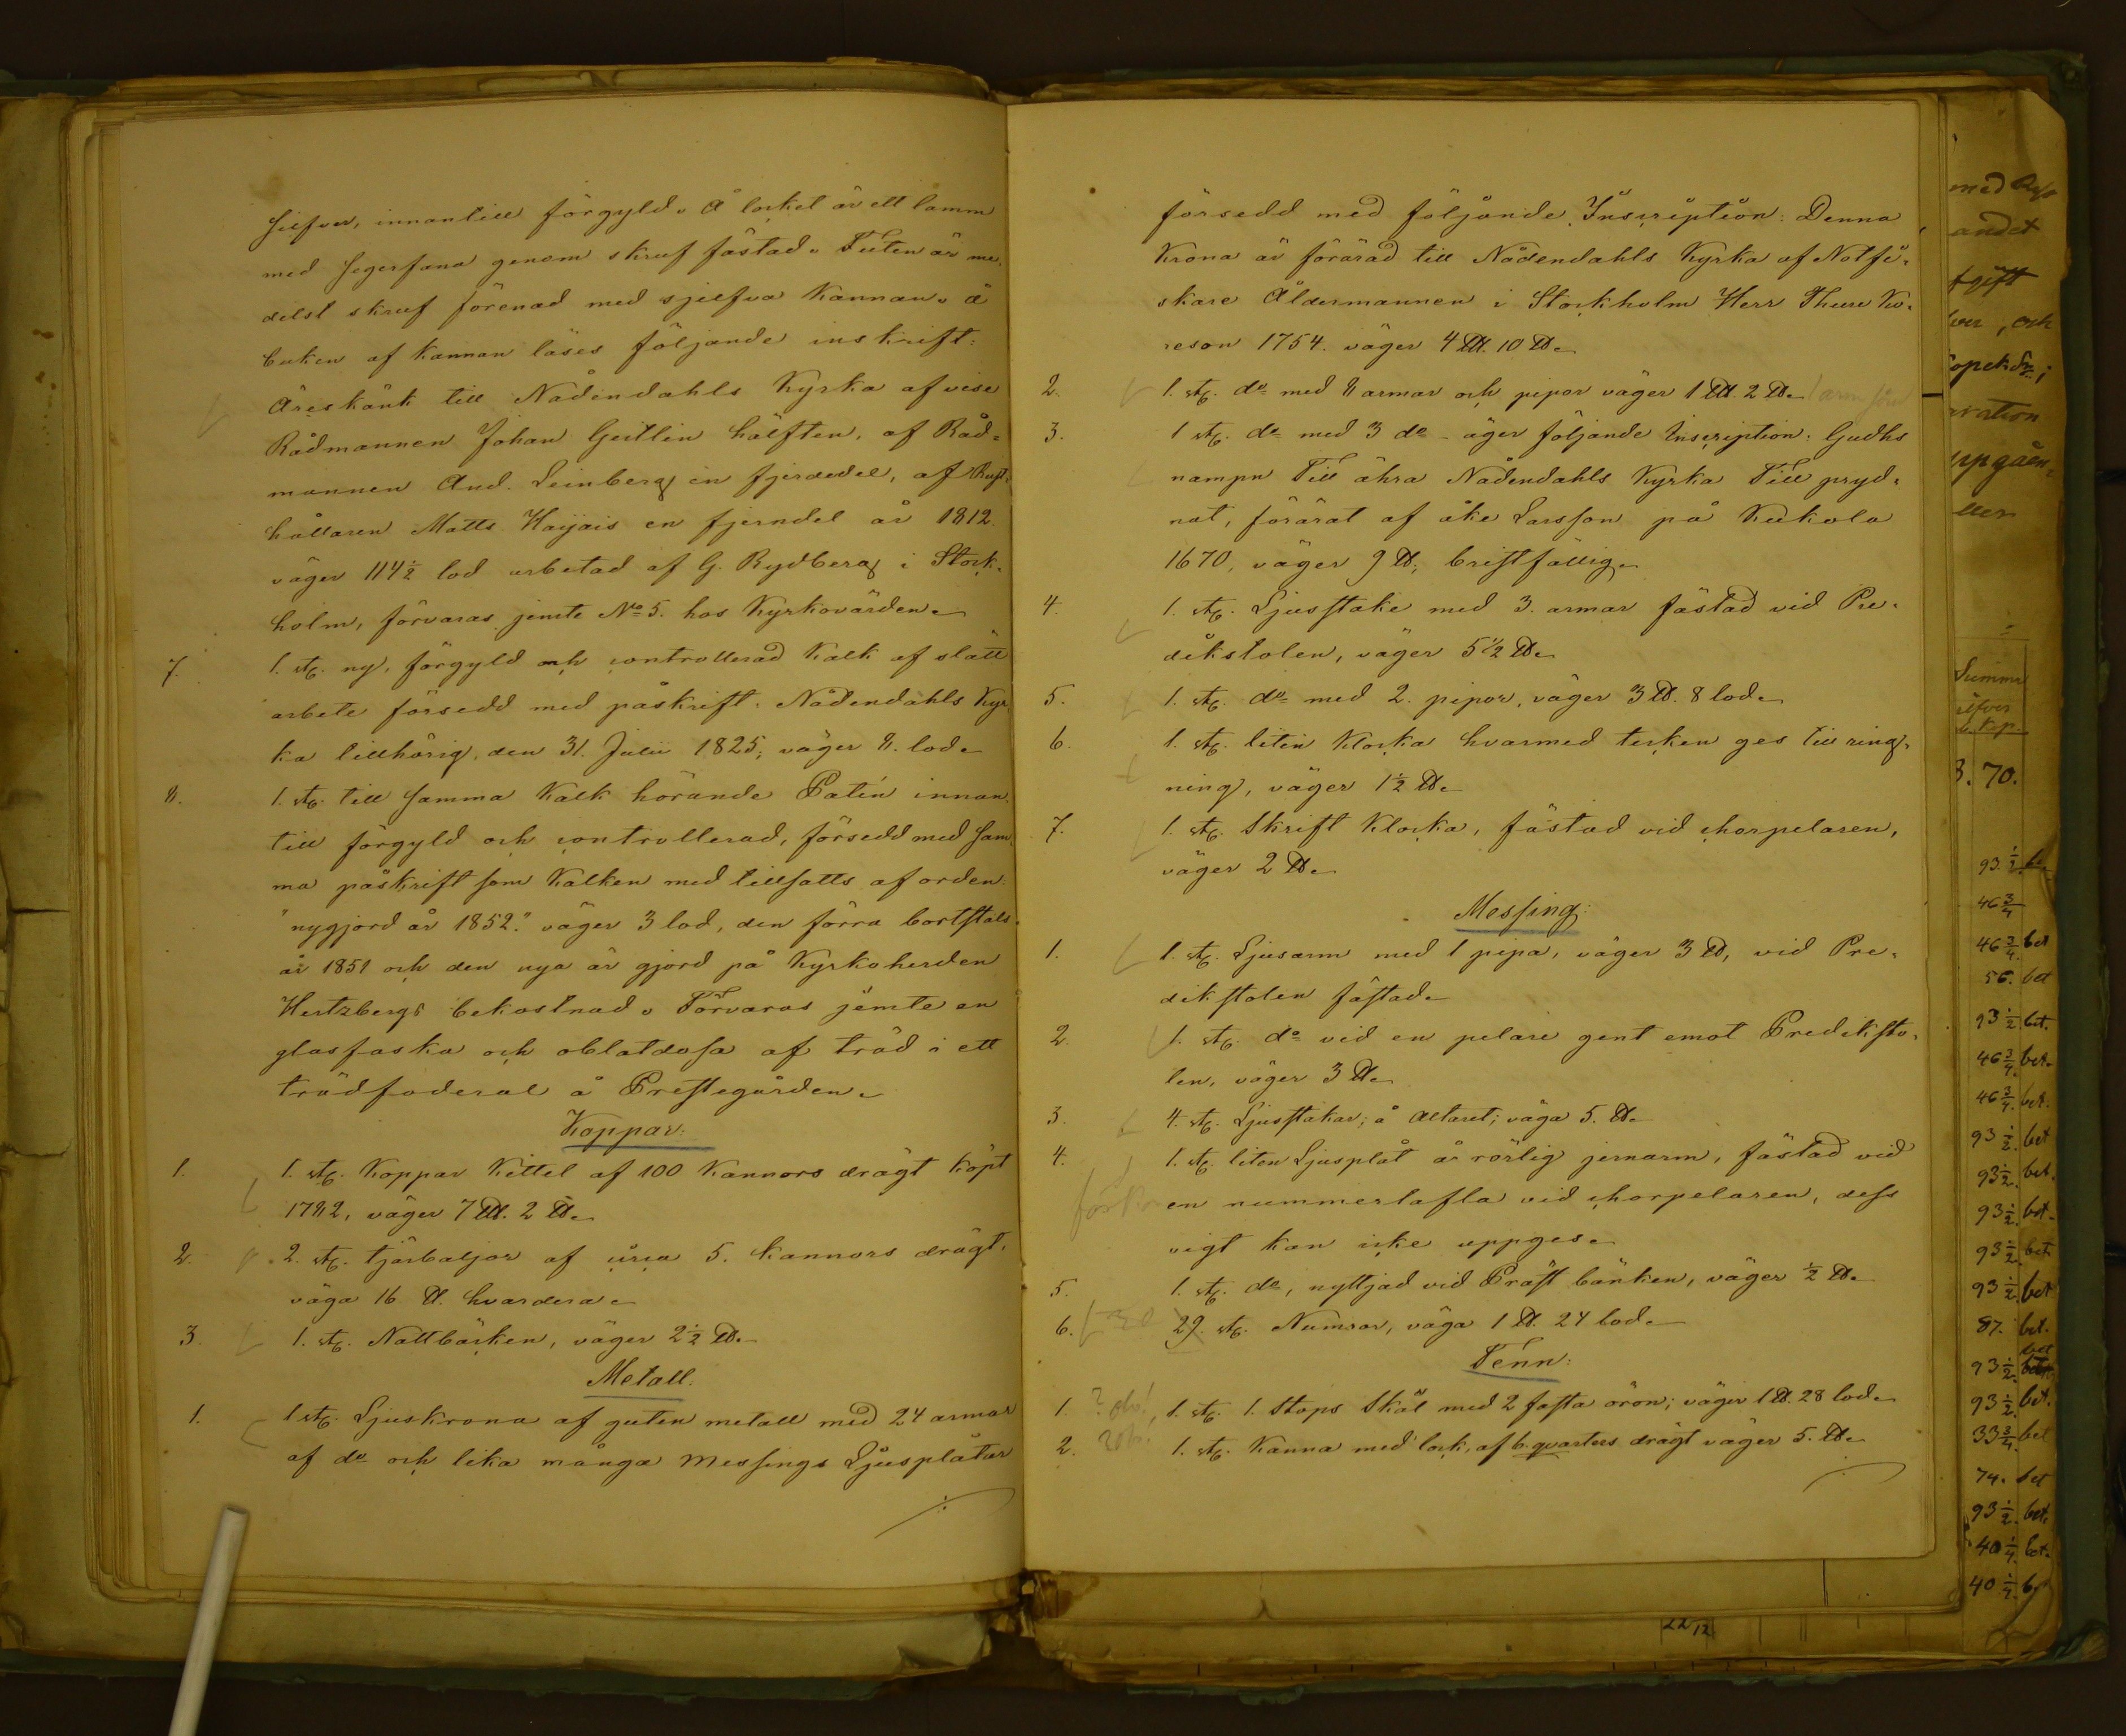 silfver, innantill förgyld. Å locket är ett lamm
med segerfana genom skruf fästad. Foten är me-
delst skruf förenad med sjelfva Kannan. å
buken af Kannan läses följande inskrift:
Äreskänk till Nådendahls Kyrka af vice
Rådmannen Johan Geitlin hälften, af Råd-
mannen And. Leinberg en fjerdedel, af Rust-
hållaren Matts Haijais en fjerndel år 1812.
väger 114½ lod arbetad af G. Rydberg i Stock-
holm, förvaras jemte No 5. hos Kyrkovärden.
7. 1. st. ny, förgyld och controllerad Kalk af slätt
arbete försedd med påskrift. Nådendahls Kyr
ka tillhörig, den 31. Julii 1825; väger 8. lod.
8. 1. st. till samma Kalk hörande Patén innan-
till förgyld och controllerad, försedd med sam-
ma påskrift som Kalken med tillsatts af orden:
"nygjord år 1852." väger 3 lod, den förra bortstals
år 1851 och den nya är gjord på Kyrkoherden
Hertzbergs bekostnad. Förvaras jemte en
glasfaska och oblatdosa af träd i ett
trädfoderal å Prestegården.
Koppar:
1. 1. st. Koppar Kittel af 100 Kannors drägt köpt
1782, väger 7 L℔. 2 ℔.
2. 2. st. tjärbaljor af circa 5. kannors drägt.
väga 16 ℔. hvardera.
3. 1. st. Nattbäcken, väger 2½ ℔.
Metall.
1. 1 st. Ljuskrona af guten metall med 24 armar
af do och lika många Messings Ljusplåtar
./.
försedd med följande Inscription: Denna
Krona är förärad till Nådendahls Kyrka af Notfi-
skare Åldermannen i Stockholm Herr Thure Ku-
reson 1754. väger 4 L℔. 10 ℔.
2. 1. st. do med 8 armar och pipor väger 1 L℔. 2 ℔. 1 arm
3. 1 st. do med 3 do - äger följande Inscription: Gudhs
nampn Till ähra Nådendahls Kyrka Till pryd-
nat, förärat af åke Larsson på Kukola
1670, väger 9 ℔; bristfällig.
4. 1. st. Ljusstake med 3. armar fästad vid Pre-
dikstolen, väger 5½ ℔.
5. 1. st. do med 2. pipor, väger 3 ℔. 8 lod.
6. 1. st. liten Klocka hvarmed tecken ges till ring-
ning, väger 1½ ℔.
7. 1. st. Skrift Klocka, fästad vid chorpelaren,
väger 2 ℔.
Messing:
1. 1. st. Ljusarm med 1 pipa, väger 3 ℔, vid Pre-
dikstolen fästad.
2. 1. st. do vid en pelare gent emot Prediksto-
len, väger 3 ℔.
3. 4. st. Ljusstakar; å Altaret; väga 5. ℔.
4. 1. st. liten Ljusplåt å rörlig jernarm, fästad vid
en nummertafla vid chorpelaren, dess
vigt kan icke uppges.
5. 1. st. do, nyttjad vid Präst bänken, väger ½ ℔.
6. 30 29. st. Numror, väga 1 ℔. 24 lod.
Tenn:
1. 1. st. 1. Stops Skål med 2 fasta öron; väger 1 ℔. 28 lod.
2. 1. st. Kanna med lock, af 6. qvarters drägt väger 5. ℔.
./.
med
andet
och
Summa
silfver
Kop.
3. 70.
93½
46¾
46¾ bet
56. bet
93½ bet.
46¾ bet.
46¾ bet.
93½ bet
93½ bet.
93½ bet.
93½ bet
93½ bet
87. bet.
93½ bet
93½ bet.
33¾ bet
74. bet
93½ bet.
40¼ bet.
40¼
22/12